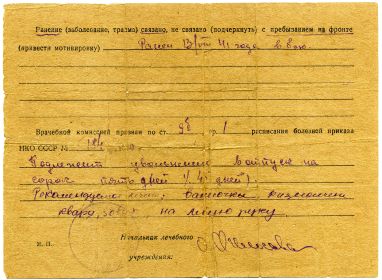 Ранение (заболевание, травма) связано, не связано (подчеркнуть) с пребыванием на фронте
(привести мотивировку) Ранен 13/VIII 41 года в бою
Врачебной комиссией признан по ст. 98 гр. 1 расписания болезней приказа
НКО СССР № 184
Подлежит увольнению в отпуск на
сорок пять дней (45 дней).
Рекомендуется ванночки,
кварц, на левую руку.
М. П.
Начальник лечебного
учреждения: